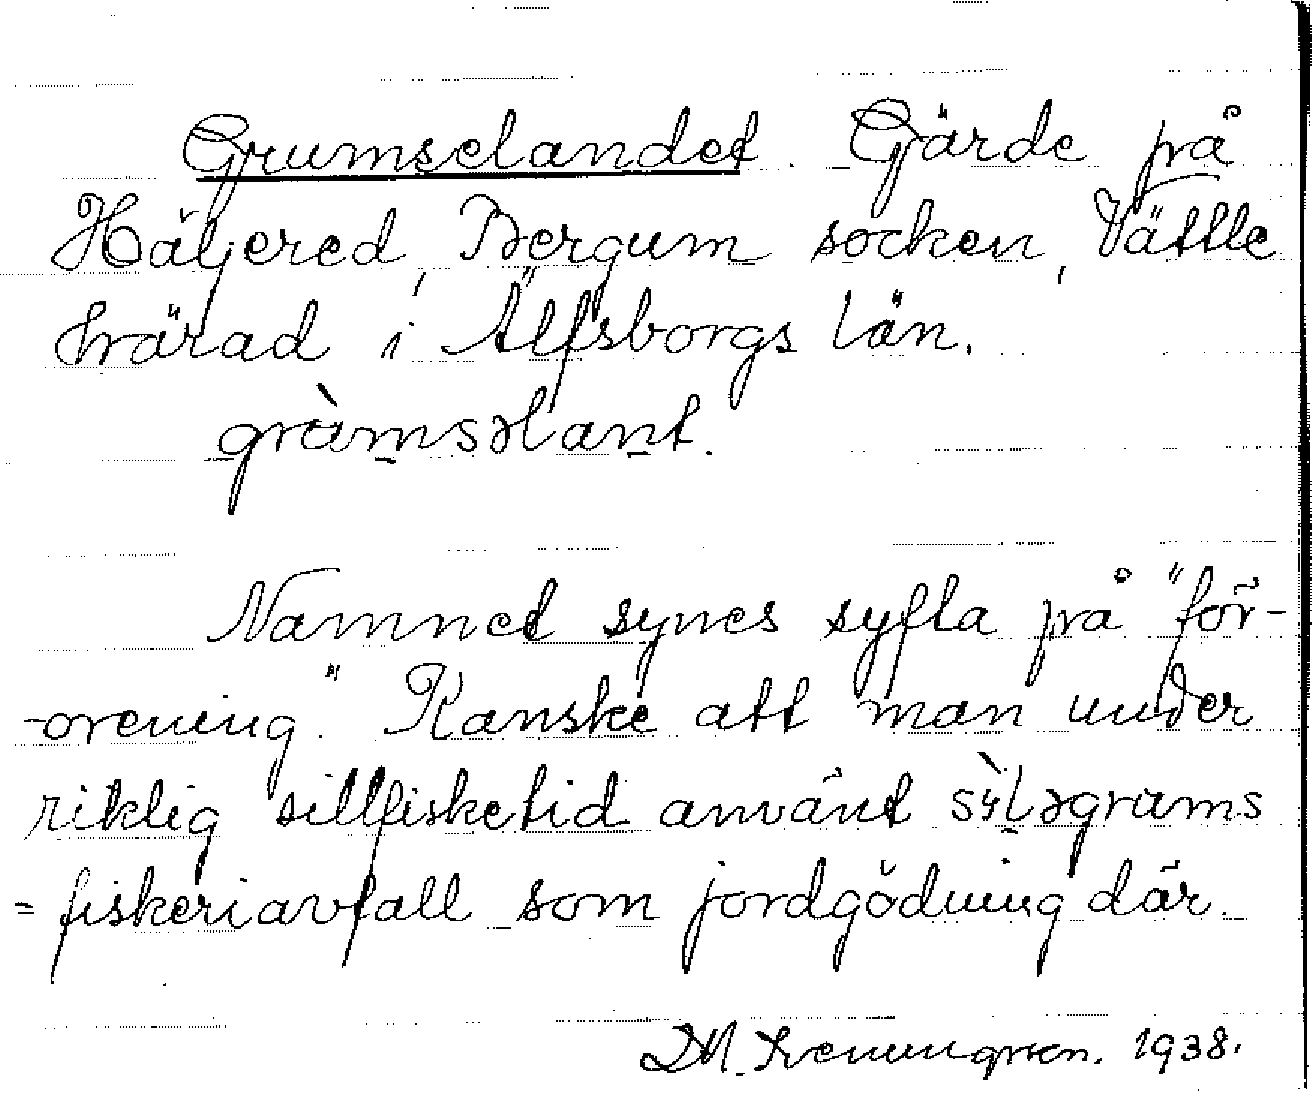 Grumselandet. Gärde på
Häljered, Bergum socken, Vättle
härad i Älfsborgs län.
gràmsəlant.
Namnet synes syfta på "för-
-orening". Kanske att man under
riklig sillfisketid använt sìləgrams
= fiskeriavfall som jordgödning där.
D M. Svenungsson. 1938.